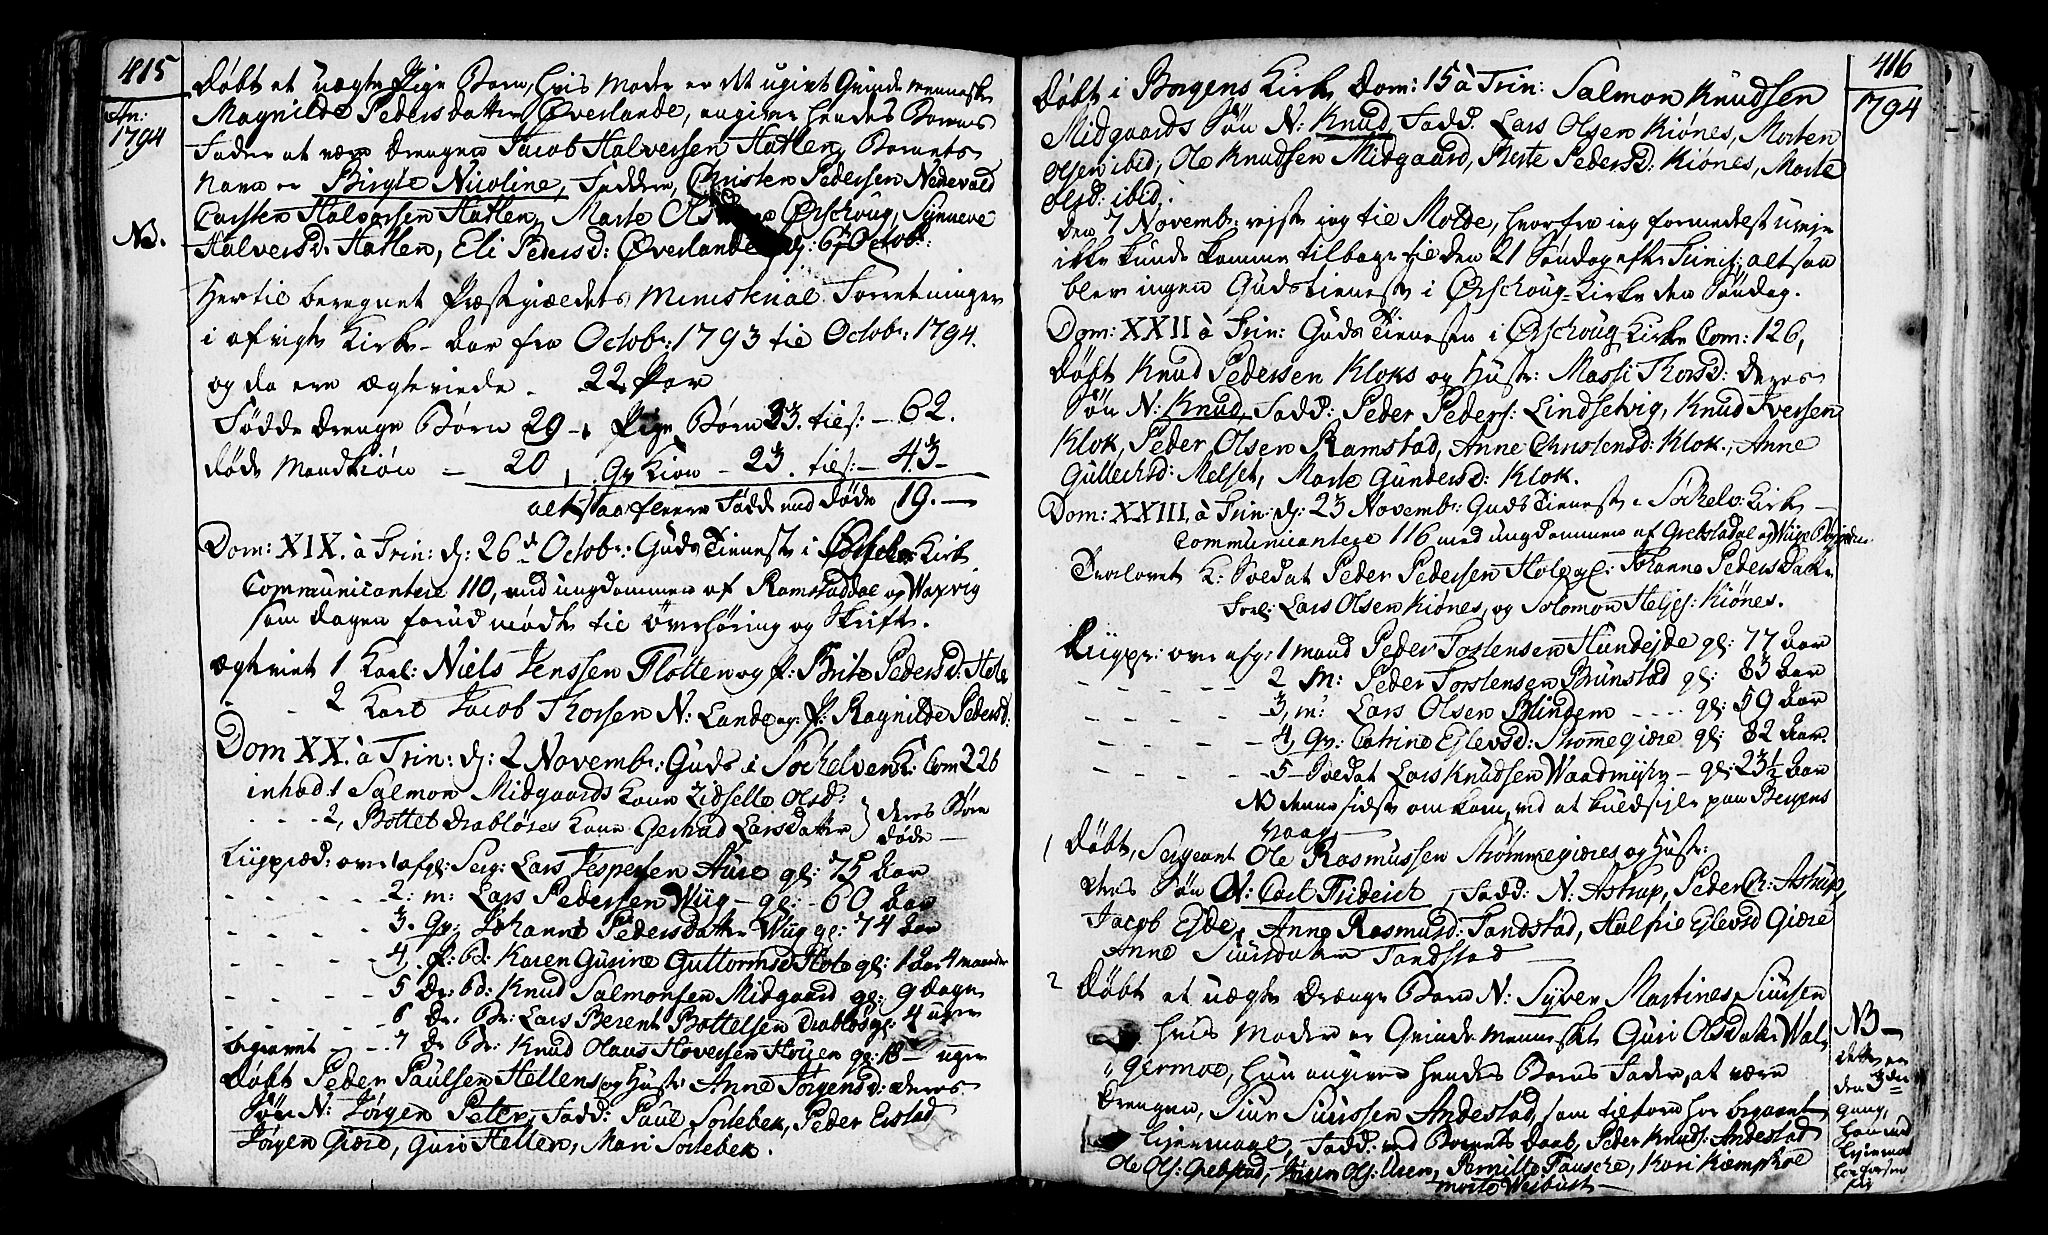 415
An:
1794
Døbt et uægte Pige Barn, hvis Moder er det ugivt Qvinde menneske
Magnilde Pedersdatter Øverlande, angiver hendes Barns
Fader at være drengen Jacob Halversen Hatlen, Barnets
Navn er Birgte Nicoline, Faddere, Christen Pedersen Nedrevold
Carsten Halvorsen Hatlen, Marte Ols Ørschoug, Synneve
NB.
Halversd: Hatlen, Eli Pedersd: Øverlande d: 6 Octob:
Hertil beregnet Præstegieldets Ministerial Forretninger
i afvigte Kirke-Aar fra Octobr: 1793 til Octobr: 1794.
og da ere ægteviede - 22 Par
Fødde drenge Børn 29 - Pige Børn 33. ties: - 62.
døde Mandkiøn - 20, Qv Kiøn - 23. ties: - 43-
altsaa fleere Fødde end døde 19. -
Dom: XIX. à Trin: d: 26 Octobr: Guds Tieneste i Kirke
Communicantere 110, med ungdommen af Ramstaddal og Waxvig
som dagen forud mødte til overhøring og Skrifte.
ægteviet 1 Karl: Niels Jenssen Flotten og p: Brite Pedersd: Hole
- - 2 Karl Jacob Thorsen N: Lande og P: Ragnilde Pedersd:
Dom XX. à Trin: d: 2 Novembr: Guds i Søchelven K: Com 226
inhad: 1 Salmon Midgaards Kone Zidselle Olsd:
- - - 2, Bottel Drabløses Kone Gertrud Larsdatter } deres Børn døde -
Liigpræd: over 1 afgl: Serg: Lars Jespersen Aure gl: 75 Aar
- - - - 2: m: Lars Pedersen Wiig - gl: - 60 Aar
- - - - 3. Qv: Johanne Pedersdatter Wiig gl: 74 Aar
- - - - 4, p: B: Karen Gurine Guttormsd Hole gl: 1 Aar 4 maaneder
- - - - 5 Dr: Bd: Knud Salmonsen Midgaard gl: 9 dage
- - - - 6 Dr. Br: Lars Berent Bottelsen Drabløs gl: 4 uger
begravet - - 7 Dr Br: Knud Olaus Hovessen Høyen gl: 18 - uger
Døbt Peder Paulsen Hellens og Hustr: Anne Jørgensd: deres
Søn N: Jørgen Peter, Fadd: Paul Sorlebek, Peder Erstad
Jørgen Giære, Guri Hellen, Mari Sorlebek.
416
1794
Døbt i Borgens Kirke Dom: 15 à Trin: Salmon Knudsen
Midgaards Søn N: Knud Fadd. Lars Olsen Kiønes, Morten
Olsen ibid, Ole Knudsen Midgaard, Berte Pedersd: Kiønes, Marte
Olsd: ibid.
den 7 Novembr: rejste ieg til Molde, hvorfra ieg formedelst uvejr
ikke kunde komme tilbage til den 21 Søndag efter Trinit:, altsaa
blev ingen Gudstieneste i Ørschoug Kirke den Søndag.
Dom: XXII à Trin: Guds Tienesten i Ørschoug Kirke Com: 126,
døbt Knud Pedersen Kloks og Hustr: Massi Thorsd: deres
Søn N: Knud, Fadd: Peder Peders: Lindsetvig, Knud Iversen
Klok, Peder Olsen Ramstad, Anne Christensd: Klok, Anne
Gullechsd: Melset, Marte Gundersd: Klok.
Dom: XXIII, à Trin: d: 23 Novembr: Guds Tieneste i Søchelv: Kirke -
Communicantere 116 med ungdommen af Grebstadal og Wiige
Trolovet K: Soldat Peder Pedersen Hole og P: Johanne Pedersdatter
Forl: Lars Olsen Kiønes, og Solomon Heljes: Kiønes.
Liigpr: over afg: 1 mand Peder Torstensen Hundejde gl: 77 Aar
- - - - 2 M: Peder Torstensen Brunstad gl: 83 Aar
- - - - 3, m: Lars Olsen Blindem - - - gl: 59 Aar
- - - - 4, Qv: Catrine Ejlevsd: Strømmegiære gl: 82 Aar.
- - - - 5 - Soldat Lars Knudsen Waadmyhr - gl: 23½ Aar
NB denne sidste omkom, ved at kuldsejle paa Bergens
Vaag
1 Døbt, Sergeant Ole Rasmussen Strømmegiæres og Hustr:
deres Søn N: Carl Friderich, Fadd: N. Astrup, Peder C: Astrup,
Jacob Ejde, Anne Rasmusd: Sandstad, Halfrie Ejlevsd Giære
Anne Siursdatter Sandstad -
2 Døbt et uægte Drænge Barn N: Syver Martines Siursen
hvis Moder er Qvinde mennesket Guri Olsdatter Wal-
germoe, hun angiver hendes Barns Fader, at være
drengen, Siur Siurssen Andestad, som tilforn har begaaet
Leiermaal, Fadd: ved Barnets daab, Peder Knuds: Andestad
Ole Ols: Grebstad, Ols: Ueen, Pernille Fausche, Kari Kiemphoe
Marte Wesbust -
NB -
dette er
den 3die
gang,
han med
Leiermaal
har forseet
sig